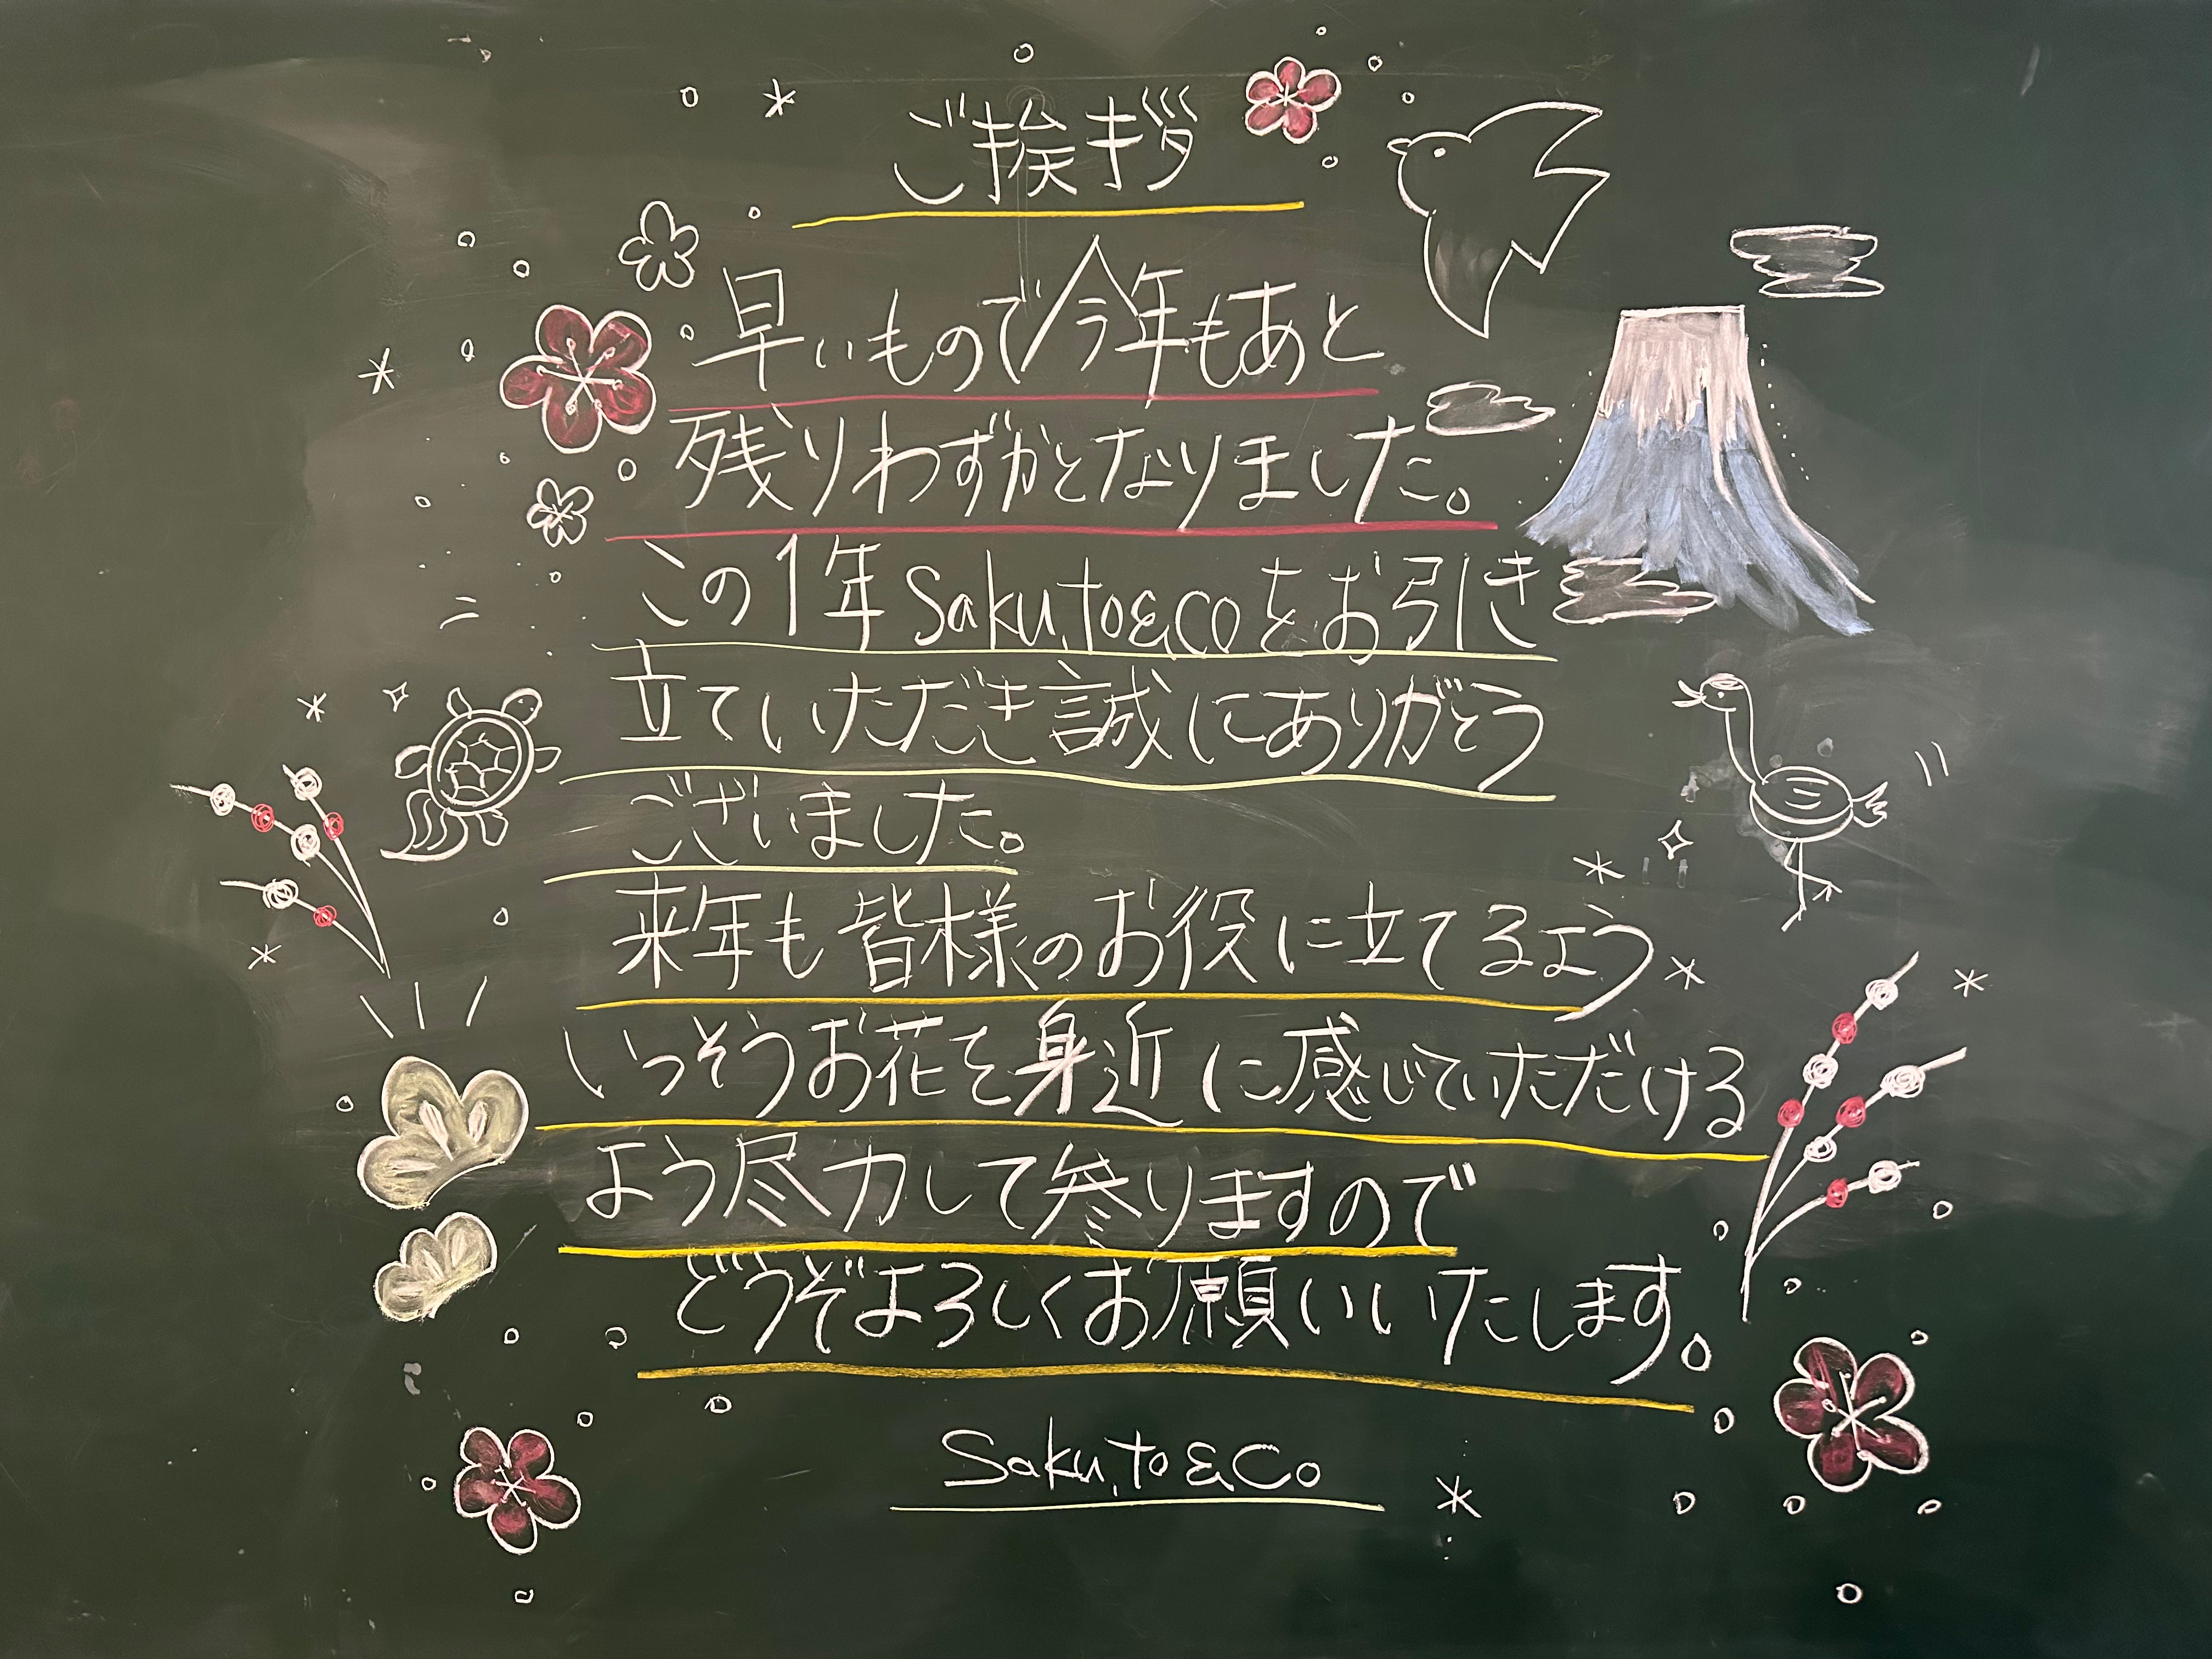 ご挨拶
早いもので今年もあと
残りわずかとなりました。
この1年Saku,to&Coをお引き
立ていただき誠にありがとう
ございました。
来年も皆様のお役に立てるよう
いっそうお花を身近に感じていただける
よう尽力して参りますので
どうぞよろしくお願いいたします。
Saku,to&Co